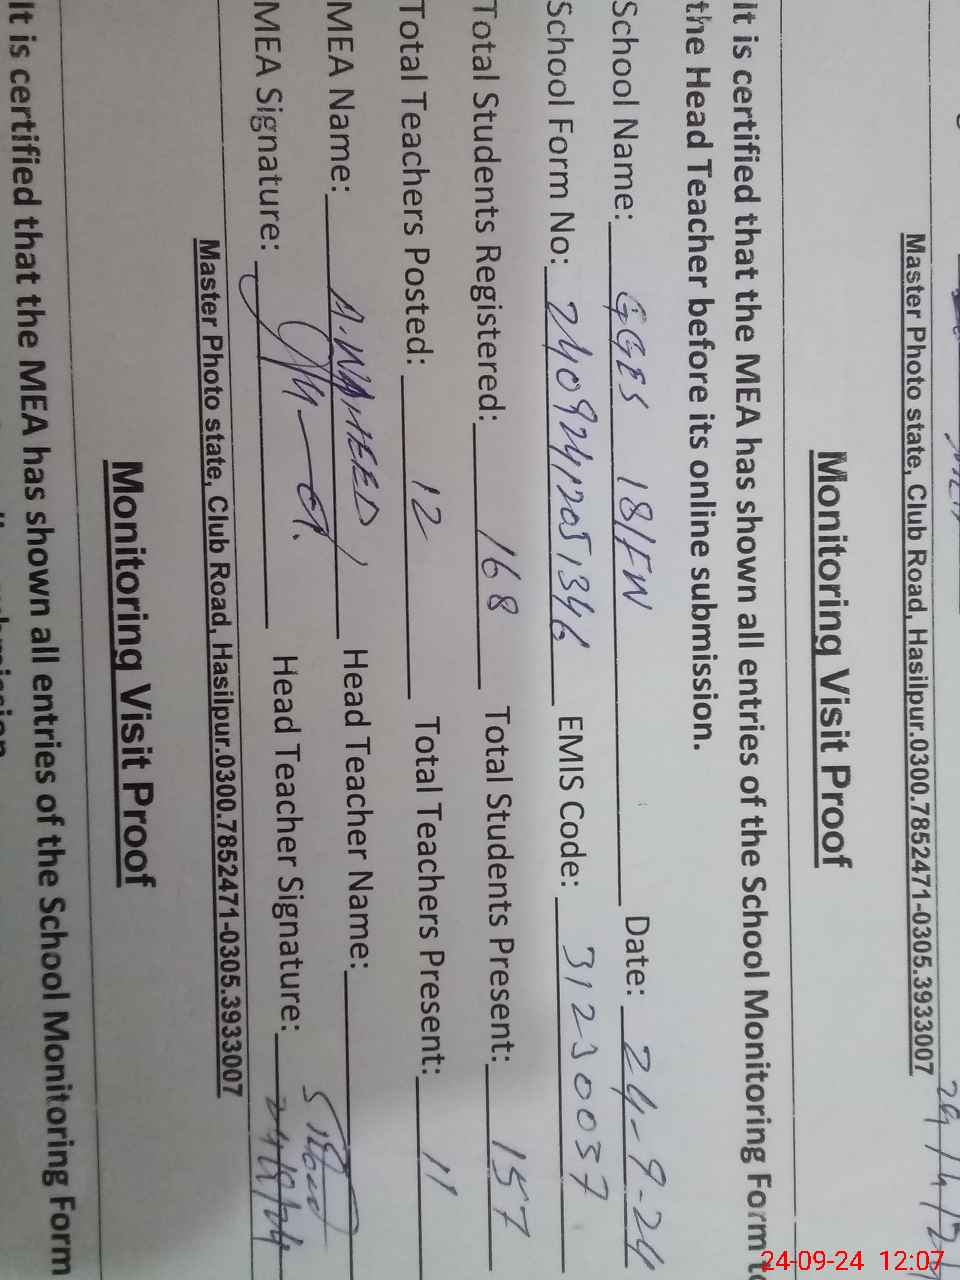 29/4/2
Master Photo state, Club Road, Hasilpur.0300.7852471-0305.3933007
Monitoring Visit Proof
It is certified that the MEA has shown all entries of the School Monitoring Form to
the Head Teacher before its online submission.
School Name: GGES 18/FW Date: 24-9-24
School Form No: 24092412051346 EMIS Code: 31230037
Total Students Registered: 168 Total Students Present: 157
Total Teachers Posted: 12 Total Teachers Present: 11
MEA Name: A.WAHEED Head Teacher Name:
MEA Signature: Head Teacher Signature: 24/9/24
Master Photo state, Club Road, Hasilpur.0300.7852471-0305.3933007
Monitoring Visit Proof
It is certified that the MEA has shown all entries of the School Monitoring Form
24-09-24 12:07